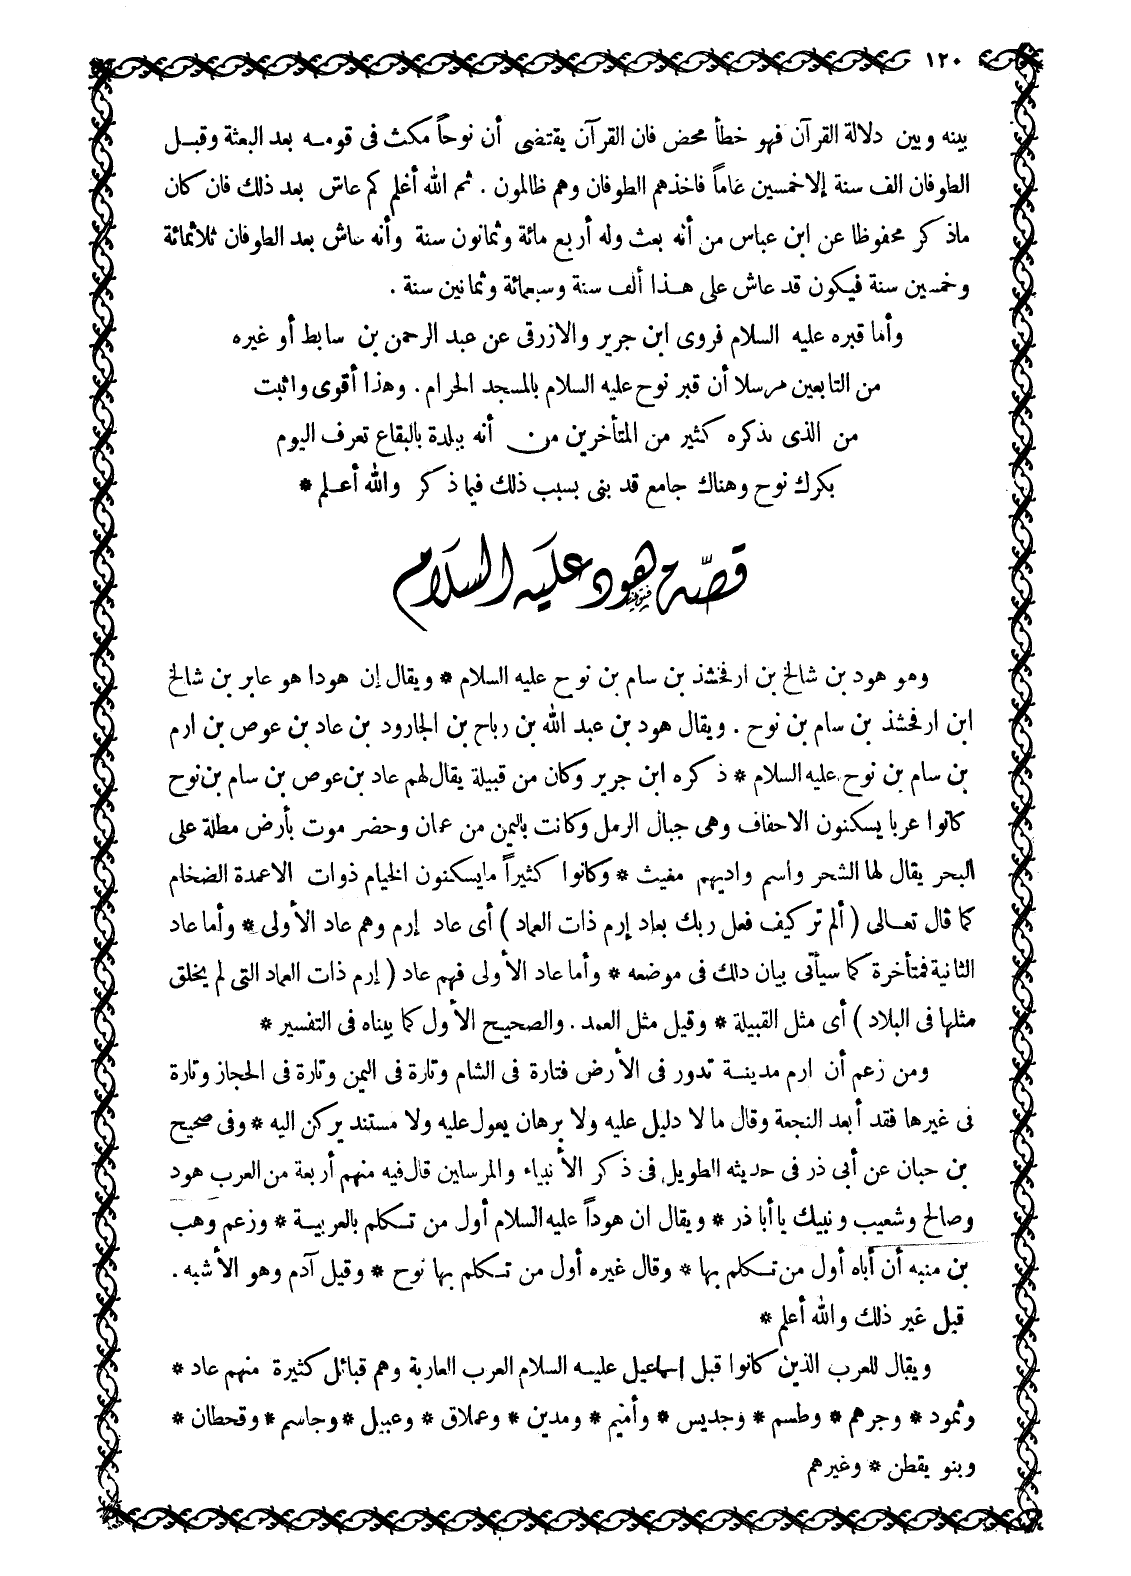 ١٢٠
بينه وبين دلالة القرآن فهو خطأ محض فان القرآن يقتضى أن نوحاً مكث فى قومه بعد البعثة وقبل
الطوفان الف سنة إلا خمسين عاماً فاخذهم الطوفان وهم ظالمون . ثم الله أعلم كم عاش بعد ذلك فان كان
ماذكر محفوظا عن ابن عباس من أنه بعث وله أربع مائة وثمانون سنة وأنه عاش بعد الطوفان ثلاثمائة
وخمسين سنة فيكون قد عاش على هذا ألف سنة وسبعمائة وثمانين سنة .
وأما قبره عليه السلام فروى ابن جرير والازرقى عن عبد الرحمن بن سابط أو غيره
من التابعين مرسلا أن قبر نوح عليه السلام بالمسجد الحرام . وهذا أقوى واثبت
من الذى يذكره كثير من المتأخرين من أنه ببلدة بالبقاع تعرف اليوم
بكرك نوح وهناك جامع قد بنى بسبب ذلك فيما ذكر والله أعلم *
قصّة هود عليه السلام
وهو هود بن شالخ بن ارفخشذ بن سام بن نوح عليه السلام * ويقال إن هودا هو عابر بن شالخ
ابن ارفخشذ بن سام بن نوح . ويقال هود بن عبد الله بن رباح بن الجارود بن عاد بن عوص بن ارم
بن سام بن نوح عليه السلام * ذكره ابن جرير وكان من قبيلة يقال لهم عاد بن عوص بن سام بن نوح
كانوا عربا يسكنون الاحقاف وهى جبال الرمل وكانت باليمن من عمان وحضر موت بأرض مطلة على
البحر يقال لها الشحر واسم واديهم مغيث * وكانوا كثيراً مايسكنون الخيام ذوات الاعمدة الضخام
كما قال تعالى ( ألم تر كيف فعل ربك بعاد إرم ذات العماد ) أى عاد إرم وهم عاد الأولى * وأما عاد
الثانية فمتأخرة كما سيأتى بيان ذلك فى موضعه * وأما عاد الأولى فهم عاد ( إرم ذات العماد التى لم يخلق
مثلها فى البلاد ) أى مثل القبيلة * وقيل مثل العمد . والصحيح الأول كما بيناه فى التفسير *
ومن زعم أن ارم مدينة تدور فى الأرض فتارة فى الشام وتارة فى اليمن وتارة فى الحجاز وتارة
فى غيرها فقد أبعد النجعة وقال ما لا دليل عليه ولا برهان يعول عليه ولا مستند يركن اليه * وفى صحيح
بن حبان عن أبى ذر فى حديثه الطويل فى ذكر الأنبياء والمرسلين قال فيه منهم أربعة من العرب هود
وصالح وشعيب ونبيك يا أبا ذر * ويقال ان هوداً عليه السلام أول من تكلم بالعربية * وزعم وهب
بن منبه أن أباه أول من تكلم بها * وقال غيره أول من تكلم بها نوح * وقيل آدم وهو الأشبه .
قبل غير ذلك والله أعلم *
ويقال للعرب الذين كانوا قبل اسماعيل عليه السلام العرب العاربة وهم قبائل كثيرة منهم عاد *
وثمود * وجرهم * وطسم * وجديس * وأميم * ومدين * وعملاق * وعبيل * وجاسم * وقحطان *
وبنو يقطن * وغيرهم